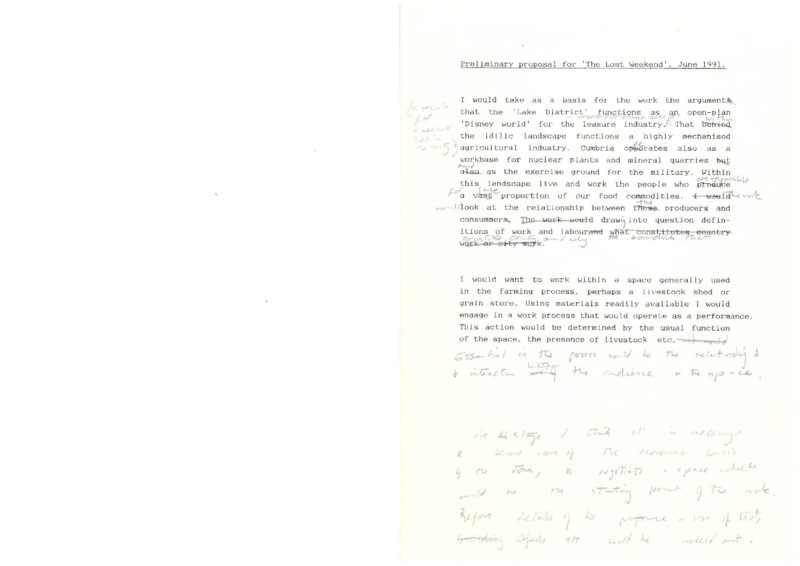 Preliminary proposal for 'The Lost Weekend', June 1991.
I would take as a basis for the work the arguments
that the 'Lake District' functions as an open-plan
'Disney world' for the leasure industry. That behind
the idilic landscape functions a highly mechanised
agricultural industry. Cumbria operates also as a
workbase for nuclear plants and mineral quarries but
and
also as the exercise ground for the military. Within
are responsible
this landscape live and work the people who produce
for large
a vast proportion of our food commodities. I would The work
would look at the relationship between these producers and
consumers. The work would drawing into question defin-
itions of work and labour and what constitutes country
country and city the economies that
work or city work.
I would want to work within a space generally used
in the farming process, perhaps a livestock shed or
grain store. Using materials readily available I would
engage in a work process that would operate as a performance.
This action would be determined by the usual function
of the space, the presence of livestock etc. It would
Essential in the process would be the relationship &
interaction between the audience & the space.
At this stage I think it is necessary
to know more of the economic basis
of the town, to negotiate a space which
would be the starting point of the work.
Before details of the performance - use of text,
objects etc could be worked out.